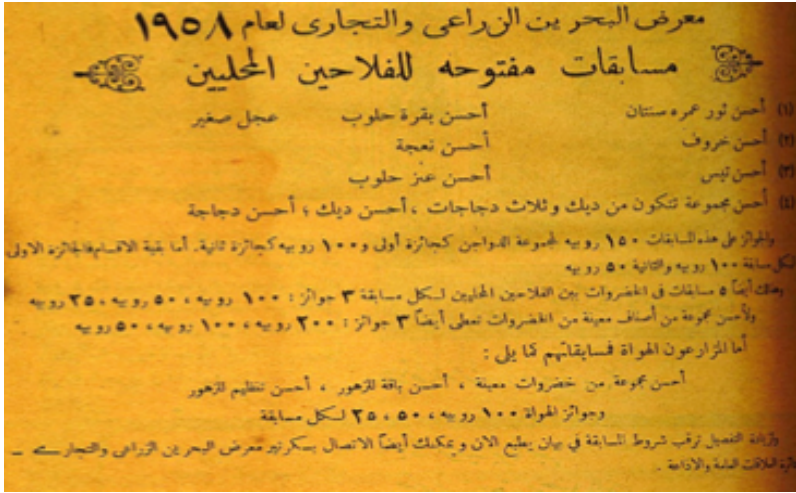 معرض البحرين الزراعى والتجارى لعام ١٩٥٨
مسابقات مفتوحه للفلاحين المحليين
(١) أحسن ثور عمره سنتان أحسن بقرة حلوب عجل صغير
(٢) أحسن خروف أحسن نعجة
(٣) أحسن تيس أحسن عنز حلوب
(٤) أحسن مجموعة تتكون من ديك وثلاث دجاجات ، أحسن ديك ؛ أحسن دجاجة
والجوائز على هذه المسابقات ١٥٠ روبيه لمجموعة الدواجن كجائزة أولى و١٠٠ روبيه كجائزة ثانية. أما بقية الاقسام فالجائزة الاولى
لكل مسابقة ١٠٠ روبيه والثانية ٥٠ روبيه
وهناك أيضاً ٥ مسابقات فى الخضروات بين الفلاحين المحليين لكل مسابقة ٣ جوائز : ١٠٠ روبيه ، ٥٠ روبيه ، ٢٥ روبيه
ولأحسن مجموعة من أصناف معينة من الخضروات تعطى أيضاً ٣ جوائز : ٢٠٠ روبيه ، ١٠٠ روبيه ، ٥٠ روبيه
أما المزارعون الهواة فمسابقاتهم كما يلى :
أحسن مجموعة من خضروات معينة ، أحسن باقة للزهور ، أحسن تنظيم للزهور
وجوائز الهواة ١٠٠ روبيه ، ٥٠ ، ٢٥ لكل مسابقة
ولزيادة التفصيل ترقب شروط المسابقة في بيان يطبع الان ويمكنك أيضاً الاتصال بسكرتير معرض البحرين الزراعى والتجارى –
دائرة العلاقات العامة والاذاعة .